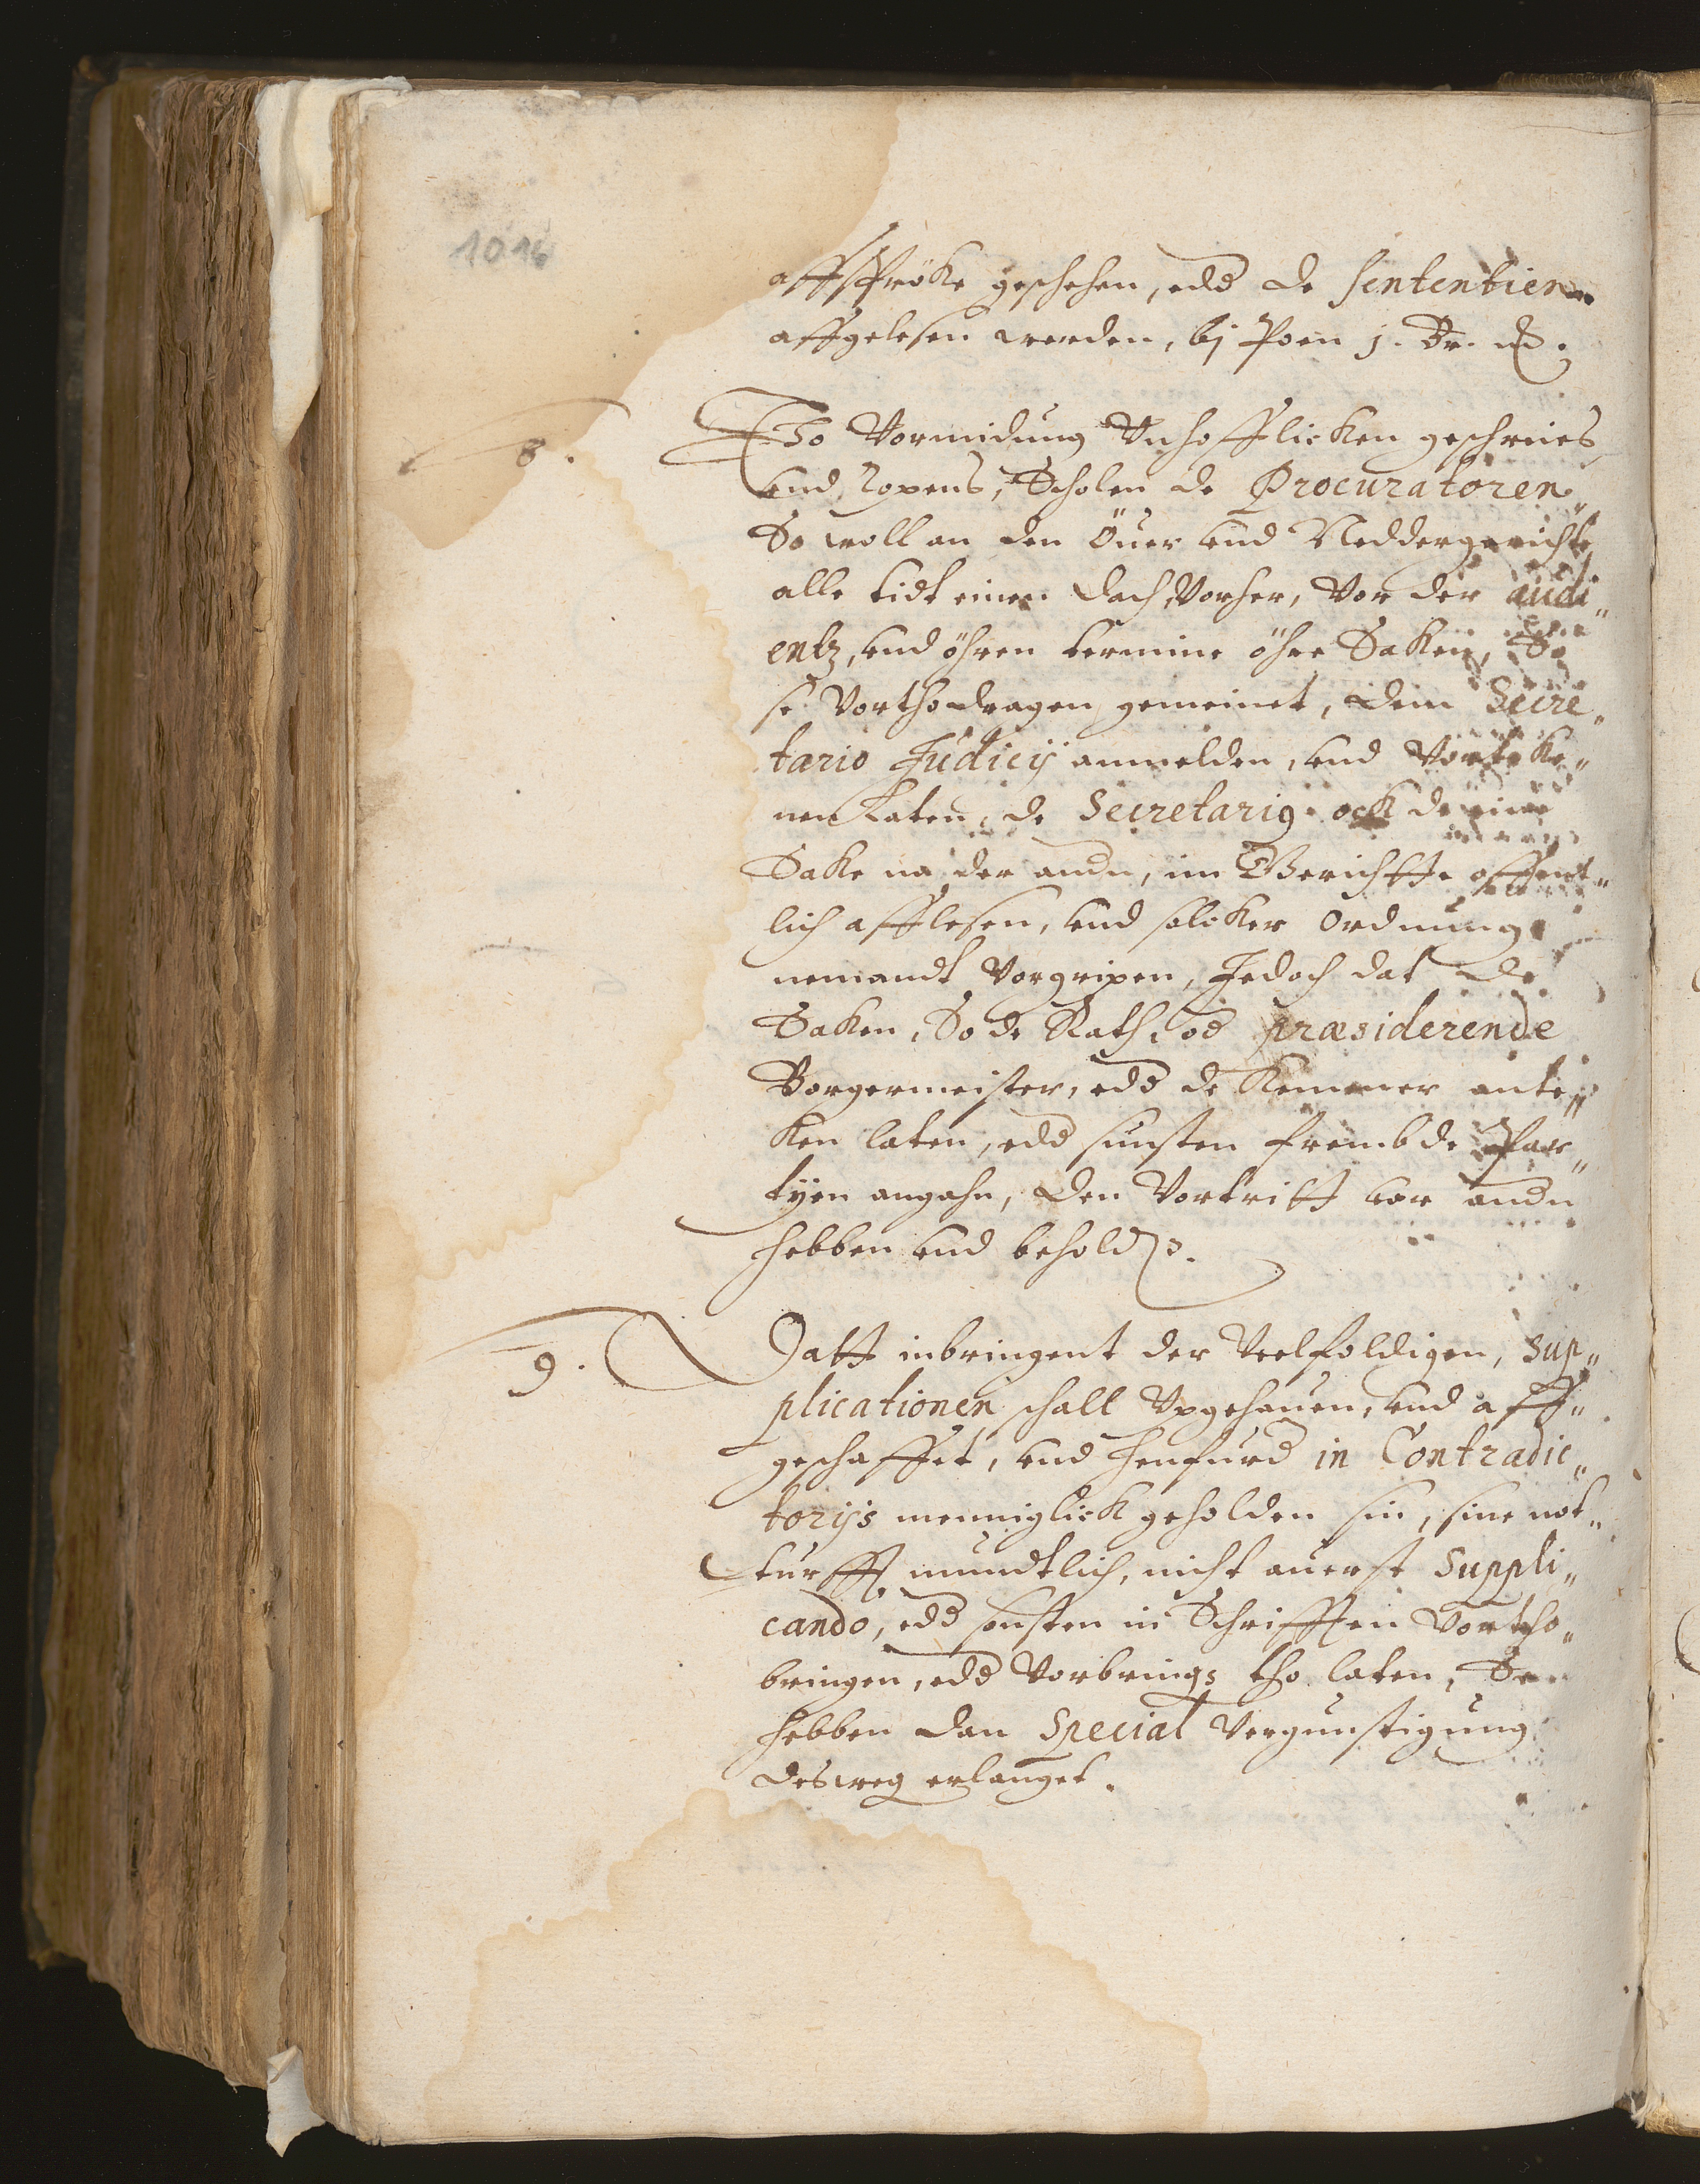 1016
affspröke geschehen, edd de sententien
affgelesen werden, bi Poen j. Dr.
8.
Tho Vormidung Unhofflicken geschreies
und ropens, Scholen de Procuratoren
So woll an den Öuer und Neddergerichte
alle tidt einen dach Vorher, Vor der audi„
entz, und öhren termine öhre Saken, So
se Vorthodragen gemeinet, dem Secre„
tario Judicij anmelden, und Vorteke„
nen laten, de Secretarig ock de eine
Sake na der andn, im Gerichtte offent„
lich afflesen, und solcker Ordnung
nemandt Vorgripen, Jedoch dat de
Saken, So de Rath, od præsiderende
Borgermeister, edd de Kemmer ante„
ken laten, edd sunsten frembde Par„
tyen angahn, den Vortritt vor andn
hebben und behold.
9.
Datt inbringent der Veelfoldigen, Sup„
plicationen schall Upgehauen, und aff„
geschaffet, und henfurd in Contradic„
torijs menniglick geholden sin, sine not„
turfft mundtlich, nicht auerst Suppli„
cando, edd sonsten in Schrifften Vortho„
bringen, edd Vorbrings tho laten, Se
hebben dan Special Vergunstigung
desweg erlanget.